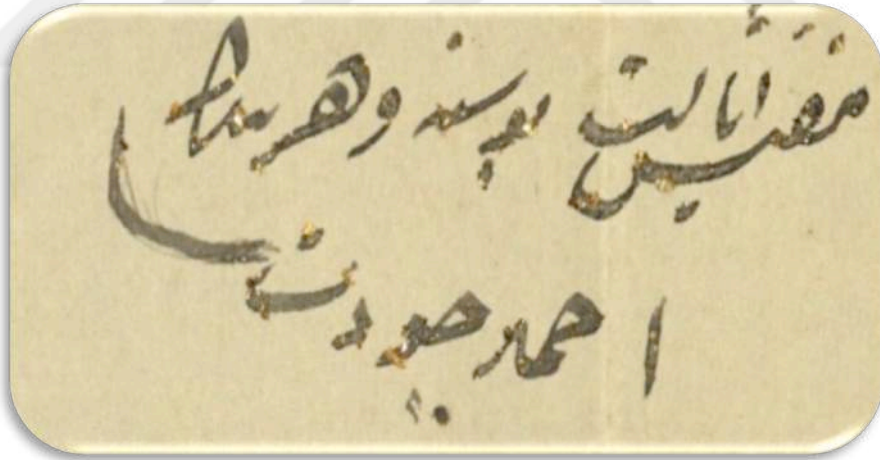 مفتش ایالت بوسنه و هرسك
احمد جودت